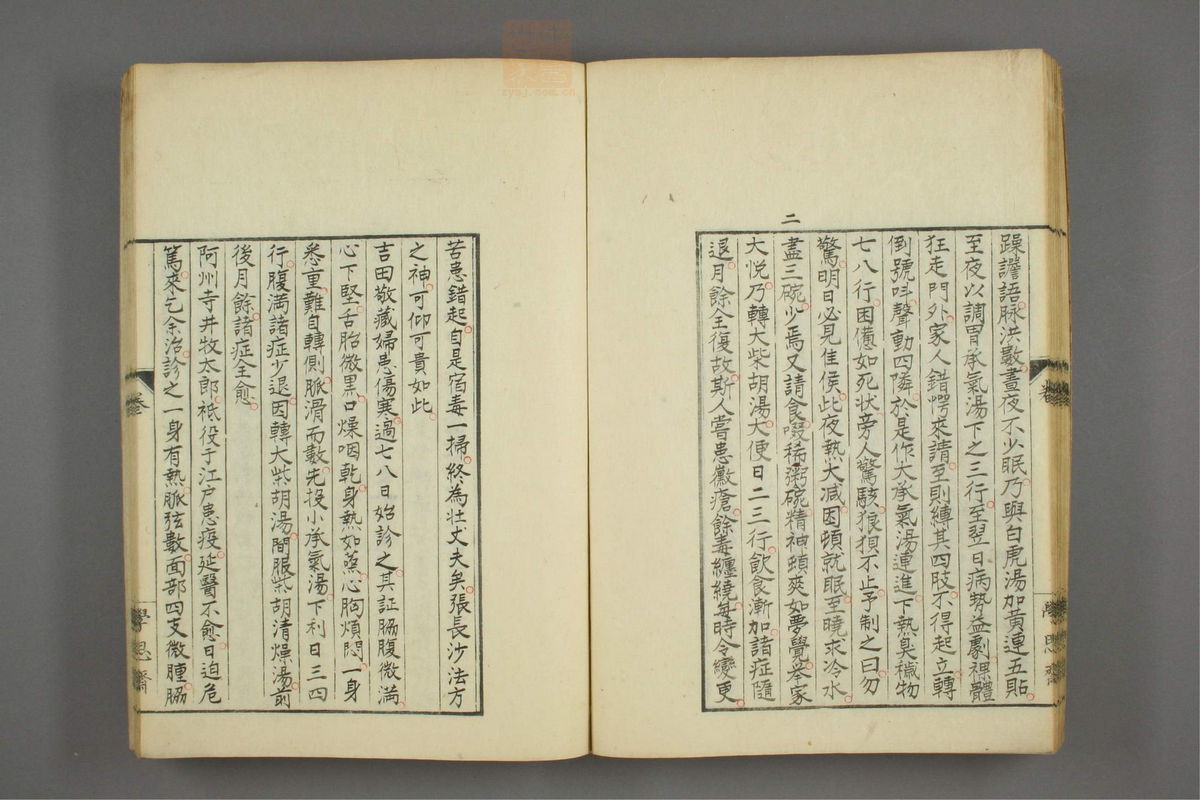 躁譫語脉洪數晝夜不少眠乃與白虎湯加黄連五貼
至夜以調胃承氣湯下之三行至翌日病勢益劇裸體
狂走門外家人錯愕來請至則縛其四肢不得起立轉
倒號呌聲動四隣於是作大承氣湯連進下熱臭穢物
七八行困憊如死状旁人驚駭狼狽不止予制之曰勿
驚明日必見佳侯此夜熱大减困頓就眠至曉求冷水
盡三碗少焉又請食啜稀粥碗精神頓爽如夢覺举家
大悦乃轉大柴胡湯大便日二三行飲食漸加諸症隨
退月餘全復故斯人嘗患黴瘡餘毒纏繞每時令變更
二
苦患錯起自是宿毒一掃終為壮丈夫矣張長沙法方
之神可仰可貴如此
吉田敬藏婦患傷寒過七八日始診之其証脇腹微満
心下堅舌胎微黒口燥咽乾身熱如蒸心胸煩悶一身
悉重難自轉側脈滑而數先投小承氣湯下利日三四
行腹満諸症少退因轉大柴胡湯間服柴胡清燥湯前
後月餘諸症全愈
阿州寺井牧太郎祇役于江户患疫延醫不愈日迫危
篤來乞余治診之一身有熱脈弦數面部四支微腫脇
學思齋
zysj.com.cn